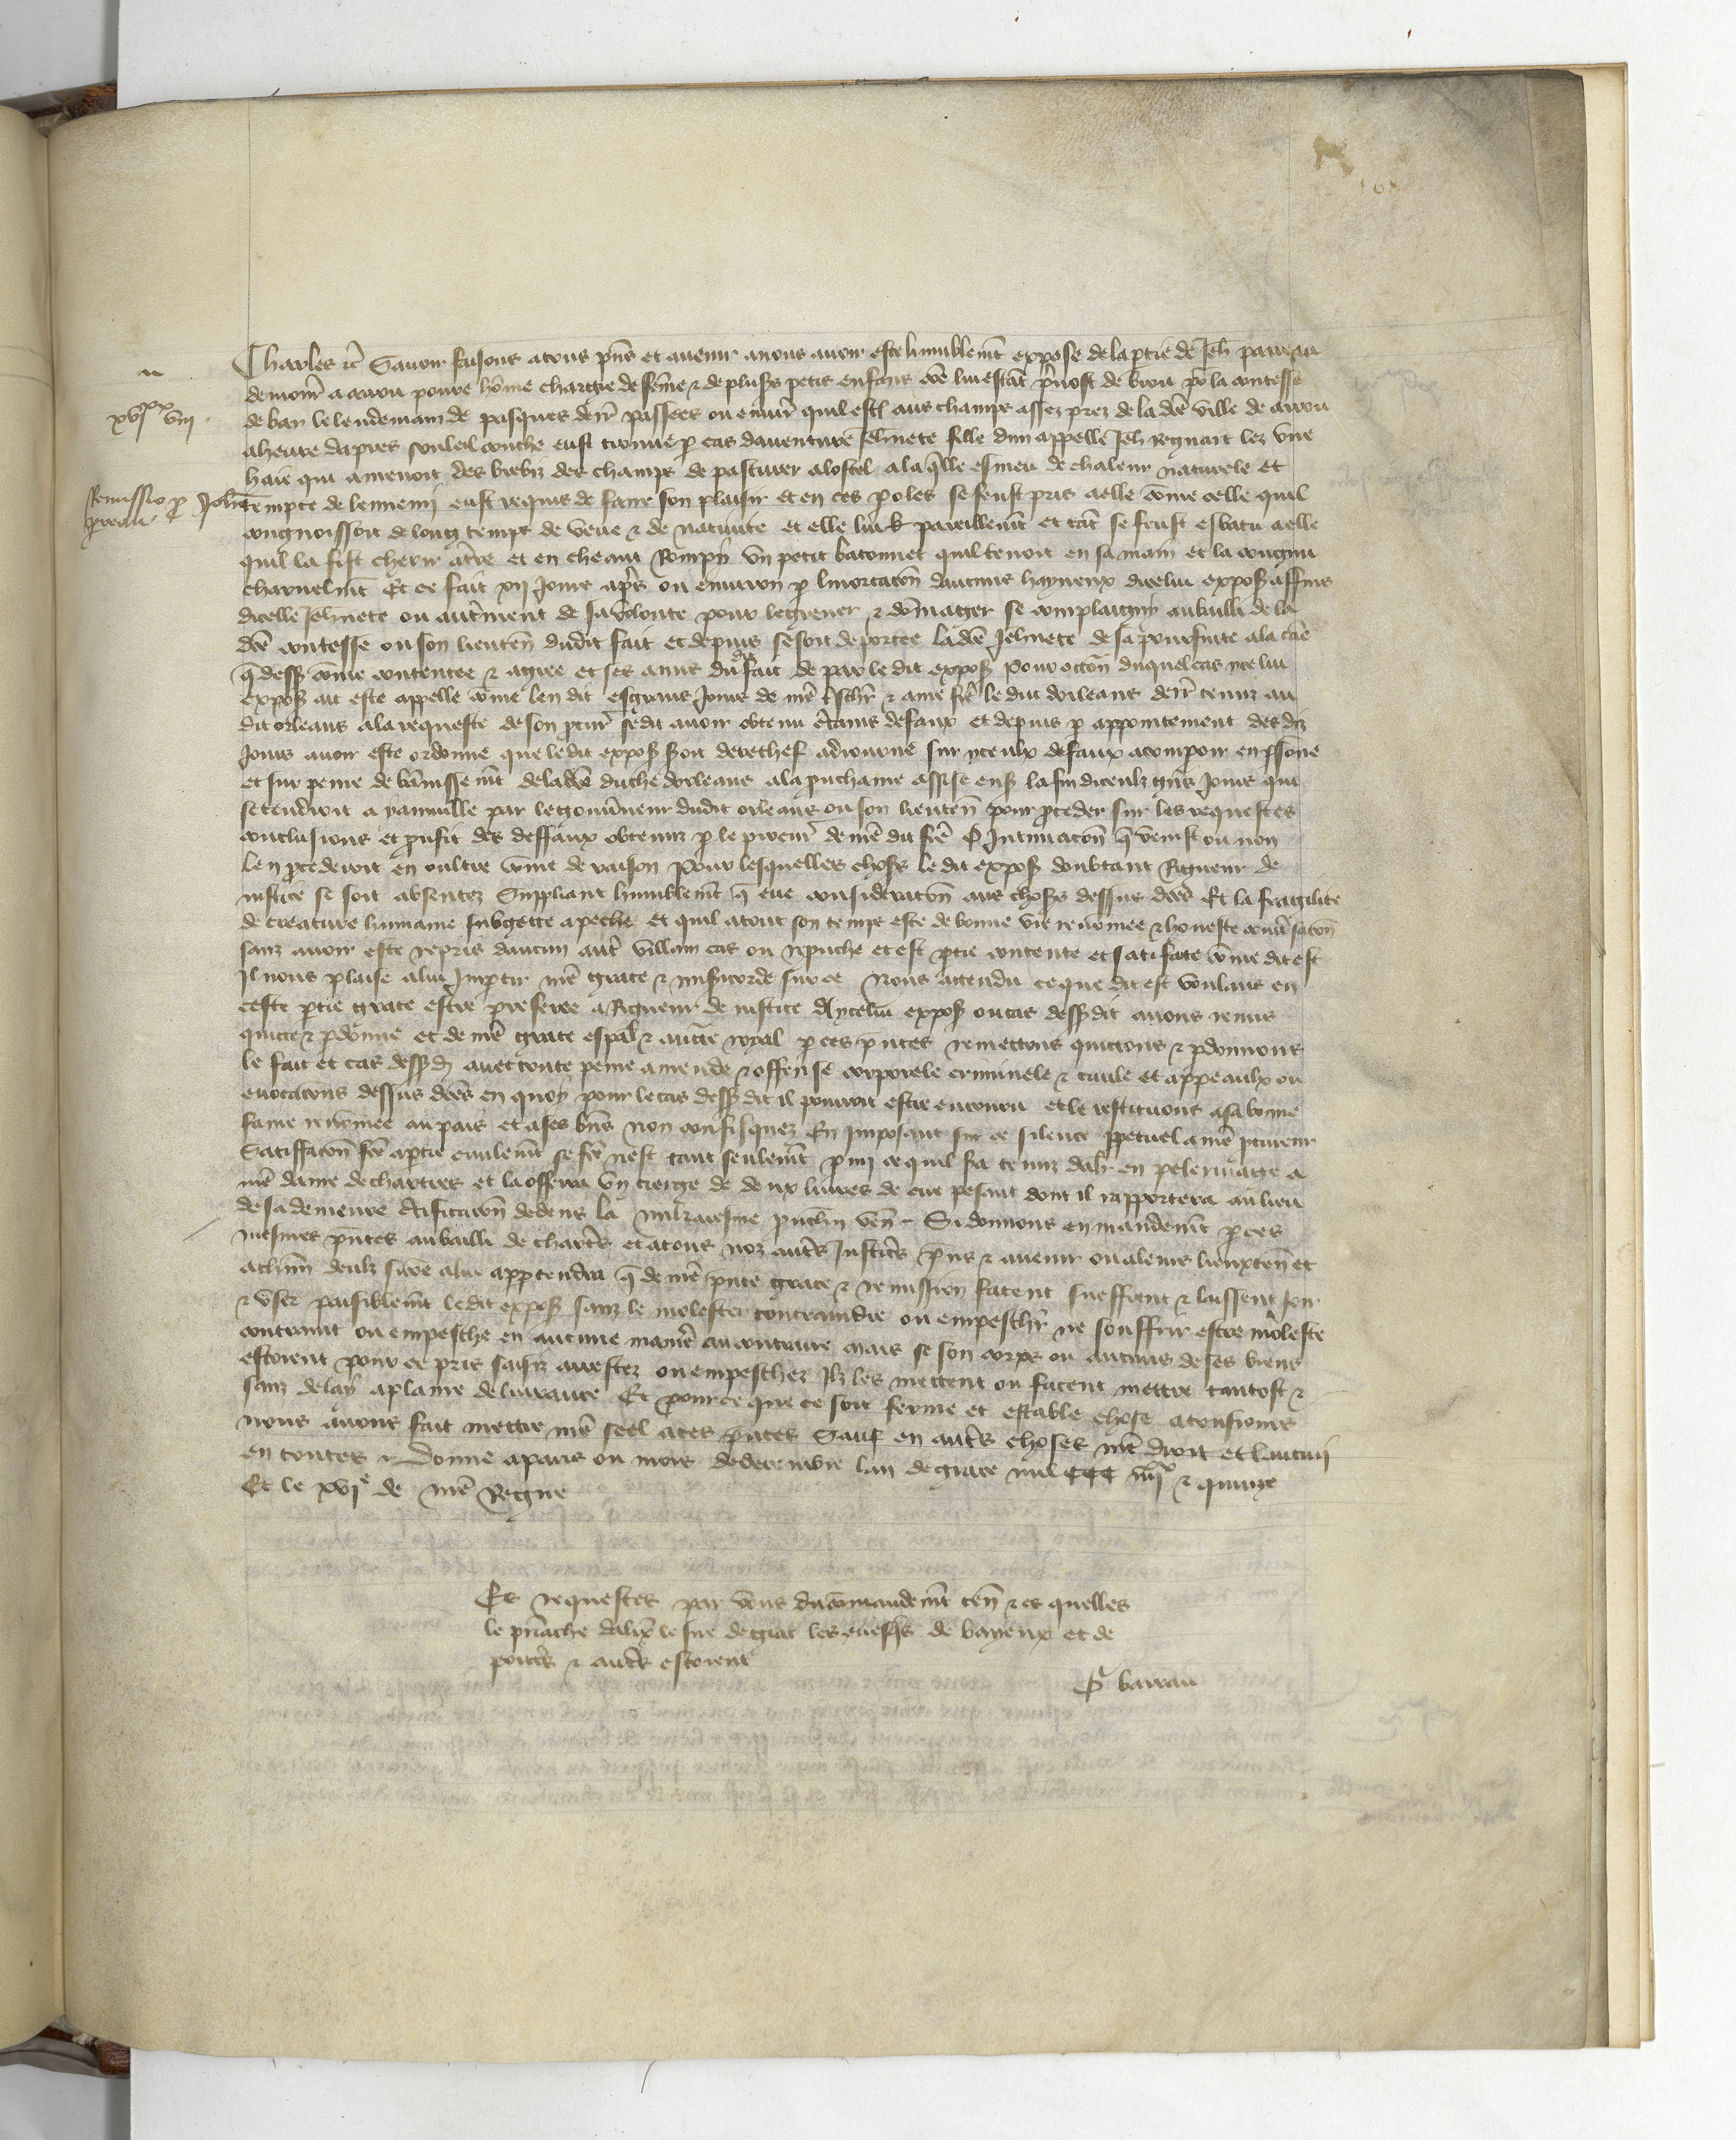 Charles etc Savoir faisons a tous pñs et avenir a nous avoir este humblemẽt expose de la ptie de Jeh parreau
demorãt a arrou povre hõme chargie de fẽme & de plusrs petis enfans cõe lui estãt pvost de brou pour la contesse
de bar le lendemain de pasques derr passees ou environ quil est aus champs assez prez de la dce ville de arrou
a heure dapres souleil couche eust trouve p cas daventure Jehnete fille dun appelle Jeh Regnart lez une
haie qui amenoit des brebiz des champs de pasturer a lostel a la qlle esmeu de chaleur naturele et
tempte de lennemi eust requis de faire son plaisir et en ces poles se feust pris a elle cõme celle quil
congnoissoit de long temps de veue & de nativite et elle a lui pareillemt et tãt se feust esbatu a elle
quil la fist cheoir a tre et en cheant Rompi un petit batonnet quil tenoit en sa main et la congnu
charnelmt Et ce fait xij Jours aps ou environ p linortacõn daucuns hayneux dicelui expost affins
dicelle Jehnete ou autrement de sa volonte pour le grever & dõmager se complaigni au bailli de la
dce contesse ou son lieuten dudit fait et depuis se soit deportee la dce Jehnete de sa poursuite a la cãe
q dess cõme contentee & agree et ses amis du dit fait de par le dit expost Pour occõn duquel cas ycelui
expost ait este appelle cõme len dit es grans Jours de nre treschr & ame fre le duc dorleans derr tenuz au
dit orleans a la requeste de son pcur se dit avoir obtenu ctains defaux et depuis p appointement des diz
Jours avoir este ordonne que le dit expost soit derechef adiourne sur yceulx defaux a comparoir en psone
et sur peine de bannissemt de la dce duche dorleans a la puchaine assise enss la fin diceulz gns Jours qui
se tendroit a yanville par le gouvneur dudit orleans ou son lieuten pour pceder sur les requestes
conclusions et prufit des deffaux obtenuz p le pcur de nre dit fre O Intimacõn q venist ou non
len pcederoit en oultre cõme de raison Pour lesquelles choses le dit expost doubtant Rigueur de
justice se soit absentez Suppliant humblemt q eue consideracõn aus choses dessus dces Et la fragilite
de creature humaine subgette a peche et quil a tout son temps este de bonne vie renõmee & honeste convsacõn
sanz avoir este repris daucun autr villain cas ou repuche et est ptie contente et satisfaite cõme dit est
Il nous plaise a lui Impartir nre grace & misicorde sur ce Nous attendu ce que dit est voulans en
ceste ptie grace estre preferee a Rigueur de justice A ycelui expost ou cas dessdit avons remis
quicte & pdonne et de nre grace espal & aucte royal p ces pntes remettons quictons & pdonnons
le fait et cas dessd avec toute peine amende & offense corporele criminele & civile et appeaulx ou
evocacõns dessus dces en quoy pour le cas dessdit il pourroit estre encouru et le restituons a sa bonne
fame renõmee au pais et a ses bns non confisquez En Imposant sur ce silence ppetuel a nre pcureur
Satiffacõn fce a ptie civilemt se fce nest tant seulemt pmi ce quil sra tenuz daler en pelerinage a
nre dame de chartres et la offrera un cierge de deux livres de cire pesant dont il rapportera au lieu
de sa demeure ctificacõn dedens la mikaresme puchn ven Si donnons en mandemt p ces
mesmes pntes au bailli de chartrs et a tous noz autrs Justicrs pñs & avenir ou a leurs lieuxten et
a chũn deulz sicõe a lui appartendra q de nre pnte grace & remission facent sueffrent & laissent Joir
& user paisiblemt ledit expost sanz le molester contraindre ou empeschr ne souffrir estre moleste
contraint ou empesche en aucune manre au contraire mais se son corps ou aucuns de ses biens
estoient pour ce pris saisiz arrestez ou empeschez Ilz les mettent ou facent mettre tantost &
sanz delay a plaine delivrance Et pource que ce soit ferme et estable chose a tousiours
nous avons fait mettre nre seel a ces pntes Sauf en autrs choses nre droit et lautrui
en toutes & Donne a paris ou mois de decembre lan de grace mil CCC iiij xx & quinze
Et le xvj e de nre Regne

Es requestes par vous du cõmandemt ten & es quelles
le priarche dalix le sire de giac les evesqs de bayeux et de
poitrs & autrs estoient
P barrau

viij xx xviij
Remissio p Johe
parreau
168